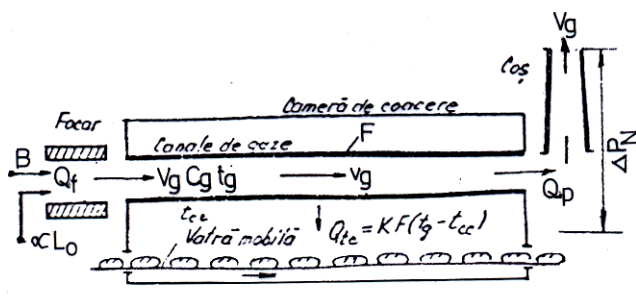 Vg
Coș
Cameră de coacere
Focar
Canale de gaze
F
B
Qf
Vg Cg tg
Vg
Qp
ΔPN
αL0
tcc
Vatră mobilă
Qtc = KF(tg - tcc)